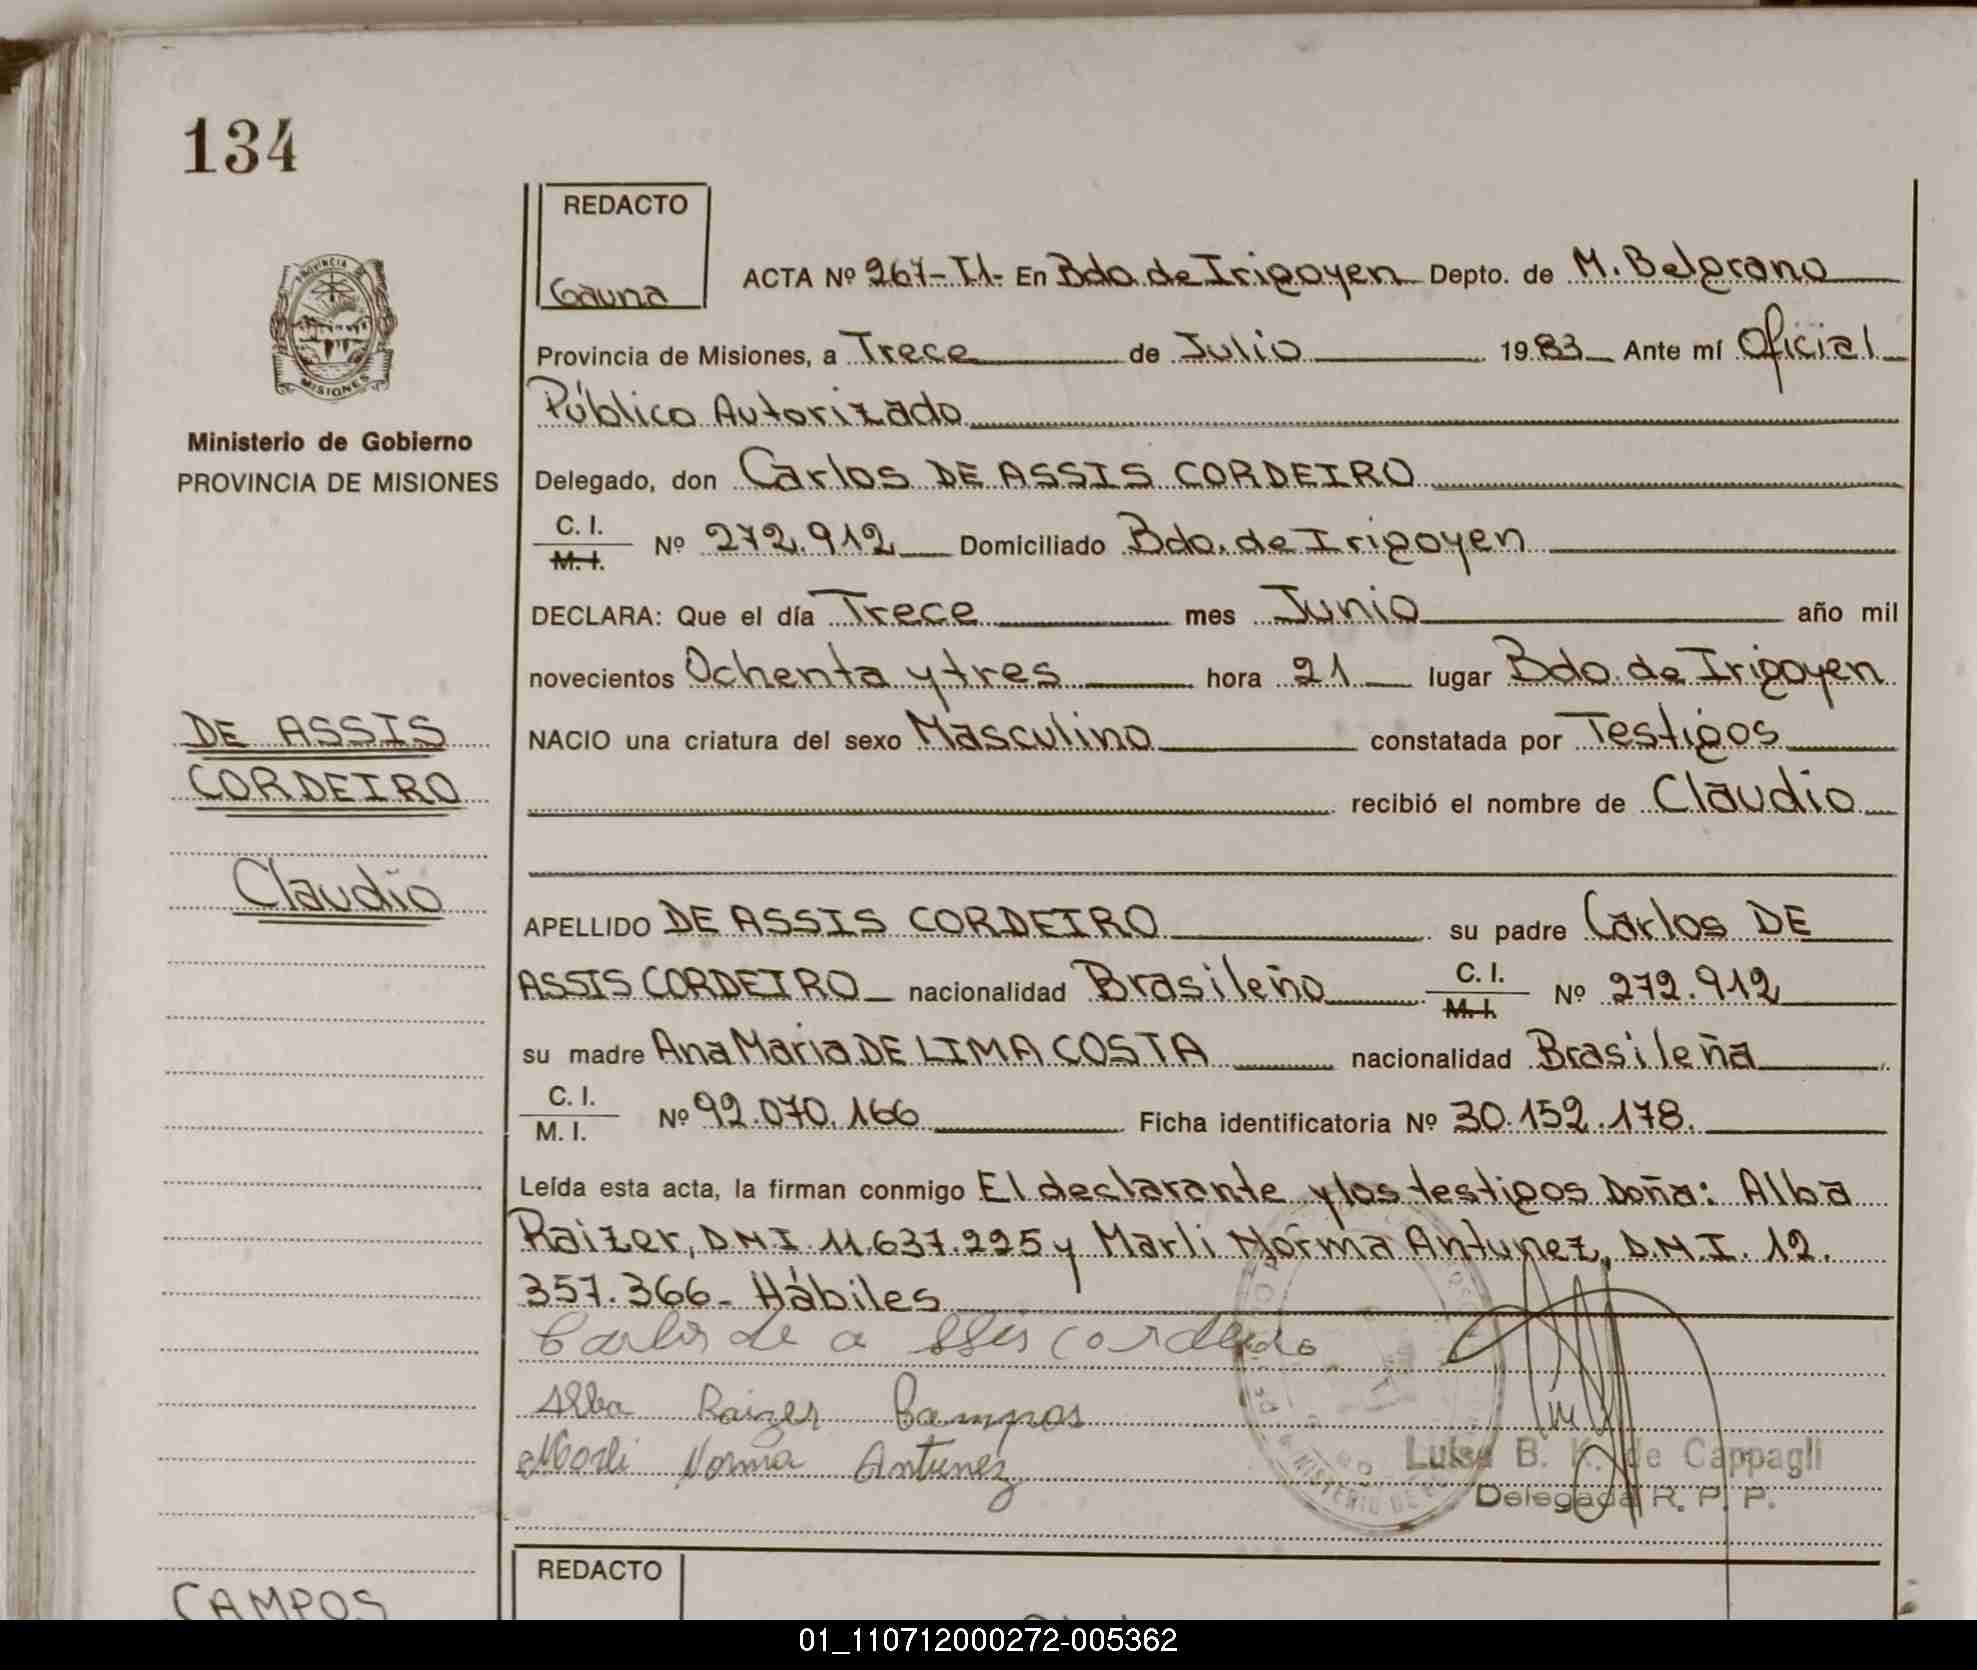 134
REDACTO
Gauna
ACTA Nº 267-T1- En Bdo. de Irigoyen Depto. de M. Belgrano
Provincia de Misiones, a Trece de Julio 1983 Ante mí Oficial
Público Autorizado
Delegado, don Carlos DE ASSIS CORDEIRO
C. I.
M. I. Nº 272.912 Domiciliado Bdo. de Irigoyen
DECLARA: Que el día Trece mes Junio año mil
novecientos Ochenta y tres hora 21 lugar Bdo. de Irigoyen
NACIO una criatura del sexo Masculino constatada por Testigos
recibió el nombre de Claudio
APELLIDO DE ASSIS CORDEIRO su padre Carlos DE
ASSIS CORDEIRO nacionalidad Brasileño C. I. M. I. Nº 272.912
su madre Ana Maria DE LIMA COSTA nacionalidad Brasileña
C. I.
M. I. Nº 92.070.166 Ficha identificatoria Nº 30.152.178.
Leída esta acta, la firman conmigo El declarante y los testigos Doña: Alba
Raizer, D.N.I. 11.637.225 y Marli Norma Antunez, D.N.I. 12.
357.366- Hábiles
Carlos de assis cordeiro
Alba Raizer Campos
Marli Norma Antunez
Luisa B. K. de Cappagli
Delegada R. P. P.
PROVINCIA DE
MISIONES
Ministerio de Gobierno
PROVINCIA DE MISIONES
DE ASSIS
CORDEIRO
Claudio
CAMPOS
REDACTO
01_110712000272-005362